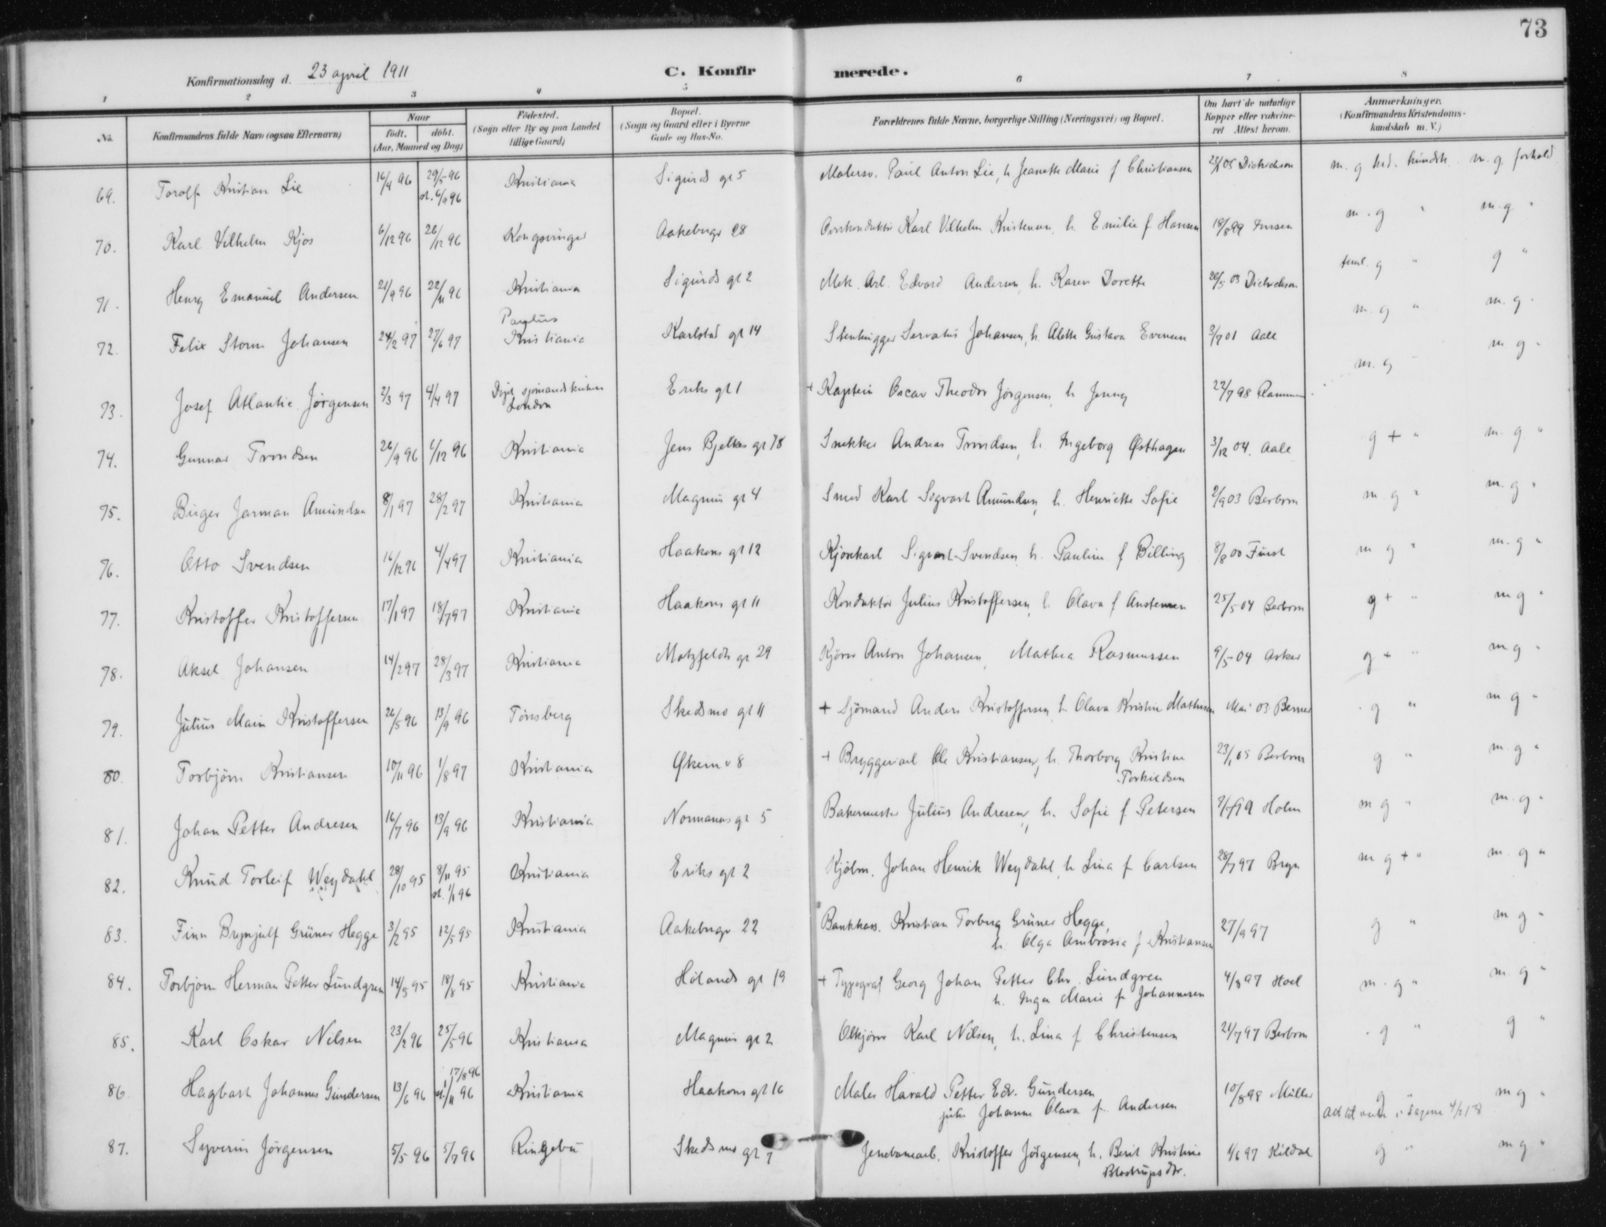 73
Konfirmationsdag d. 23 april 1911 C. Konfirmerede.
1 2 3 4 5 6 7 8
No. Konfirmandens fulde Navn (ogsaa Efternavn) Naar født. døbt. (Aar, Maaned og Dag) Fødested. (Sogn eller By og paa Landet tillige Gaard) Bopæl. (Sogn og Gaard eller i Byerne Gade og Hus-No. Forældrenes fulde Navne, borgerlige Stilling (Næringsvei) og Bopæl. Om havt de naturlige Kopper eller vaccineret. Attest herom. Anmærkninger. (Konfirmandens Kristendomskundskab m. V.)
69. Torolf Kristian Lie 16/4 96 29/5 96 Kristiania Sigurds gt 5 Malersv. Paul Anton Lie, h. Jeanette Marie f Christiansen m. g krd. kundsk. m. g. forhold
70. Karl Vilhelm Kjos 6/12 96 26/12 96 Kongsvinger Aakebergv 28 Karl Vilhelm Kristensen h. Emilie f Hansen m. g " m. g. "
71. Henry Emanuel Andersen 21/9 96 22/11 96 Kristiania Sigurds gt 2 Mek. Arb. Edvard Andersen, h. Karen Dorethe 20/5 03 g " g "
72. Felix Storm Johansen 24/2 97 27/6 97 Paulus Kristiania Karlstad gt 14 Stenhugger Servatius Johansen, h. Alette Gustava Evensen 3/7 01 Aall m. g " m. g.
73. Josef Atlantic Jørgensen 2/3 97 4/4 97 sjømandskirken London Eriks gt 1 + Kaptein Oscar Theodor Jørgensen, h. Jenny 22/7 98 m. g m g "
74. Gunnar Trondsen 26/9 96 6/12 96 Kristiania Jens Bjelkes gt 78 Snekker Andreas Trondsen, h. Ingeborg Østhagen 3/12 04. Aall g + " m. g "
75. Birger Jarman Amundsen 8/1 97 28/2 97 Kristiania Magnus gt 4 Smed Karl Sigvart Amundsen, h. Henriette Sofie 2/9 03 Berbom m g " m. g "
76. Otto Svendsen 16/12 96 4/4 97 Kristiania Haakons gt 12 Kjørekarl Sigvart Svendsen h. Pauline f Billing 8/8 00 Fürst m g " m. g "
77. Kristoffer Kristoffersen 17/1 97 18/7 97 Kristiania Haakons gt 11 Konduktør Julius Kristoffersen, h. Olava f Austensen 25/5 04 Berbom g + " m g "
78. Aksel Johansen 14/2 97 28/3 97 Kristiania Motzfeldts gt 29 Kjører Anton Johansen, Mathea Rasmussen 9/5 04 g + " m g "
79. Julius Main Kristoffersen 26/5 96 13/9 96 Tønsberg Skedsmo gt 11 + Sjømand Anders Kristoffersen h Olava Kristine Mathisen Mai 03 Berner g " m g "
80. Torbjørn Kristiansen 10/11 96 1/8 97 Kristiania Økern v 8 + Bryggeriarb Ole Kristiansen, h. Thorborg Kristine Torkildsen 23/1 05 Berbom g " m. g "
81. Johan Petter Andresen 16/7 96 13/9 96 Kristiania Normans gt 5 Bakermester Julius Andresen, h. Sofie f Petersen 99 Holm m g " m. g "
82. Knud Torleif Weydahl 28/10 95 8/11 95 Kristiania Eriks gt 2 Kjøbm. Johan Henrik Weydahl, h Lina f Carlsen 28/7 97 Bryn m g + " m. g "
83. Finn Brynjulf Grüner Hegge 3/2 95 12/5 95 Kristiania Aakebergv 22 Bankkass. Kristian Torberg Grüner Hegge, h. Olga Ambrosia f Kristiansen 27/9 97 g " m g "
84. Torbjørn Herman Petter Lundgren 14/5 95 18/8 95 Kristiania Hølands gt 19 + Typograf Georg Johan Petter Chr. Lundgren h. Inga Marie f Johannesen 4/8 97 Hoel m. g " m g "
85. Karl Oskar Nilsen 23/2 96 25/5 96 Kristiania Magnus gt 2 Ølkjører Karl Nilsen, h. Lina f Christensen 21/7 97 Berbom g " g "
86. Hagbart Johannes Gundersen 13/6 96 17/8 96 Kristiania Haakons gt 16 Maler Harald Petter Edv. Gundersen Johanne Olava f Andersen 10/8 98 Müller g " m g "
87. Syverin Jørgensen 5/5 96 5/7 96 Ringebu Skedsmo gt 7 Jernbanearb. Kristoffer Jørgensen, h. Berit Kristine 97 Kildal g " m g "